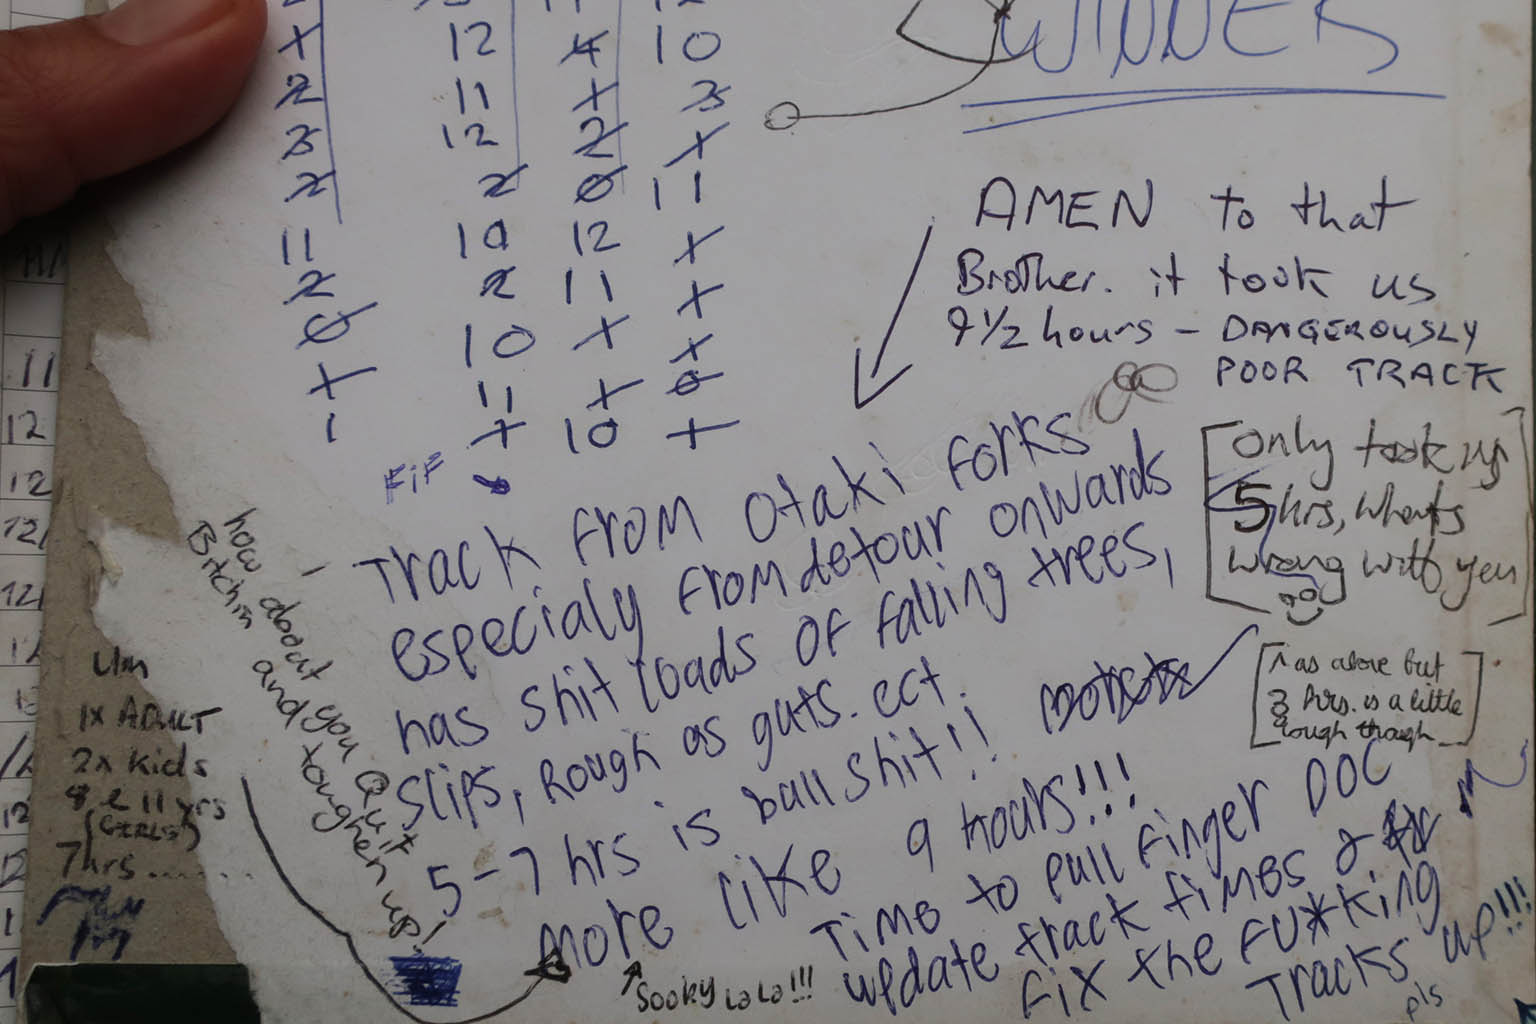 WINNER
12 4 10
11 + 3
12 2 +
2 0 11
11 10 12 +
2 2 11 +
0 10 + +
+ 11 + 0
1 + 10 +
FiF
AMEN to that
Brother. it took us
9 1/2 hours - DANGEROUSLY
POOR TRACK
Only took us
5 hrs, whats
wrong with you
^ as above but
3 hrs. is a little
tough though
Track from Otaki forks
especialy from detour onwards
has shit loads of falling trees,
slips, rough as guts. ect.
5-7 hrs is bull shit!!
more like 9 hours!!!
Time to pull finger DOC
update track times &
fix the FU*king
Tracks up!!!
pls
Sooky LaLa!!!
how about you Quit
Bitchin and toughen up!
um
1x ADULT
2x kids
9 & 11 yrs
(GIRLS!)
7hrs.......
11
12
12
12
12